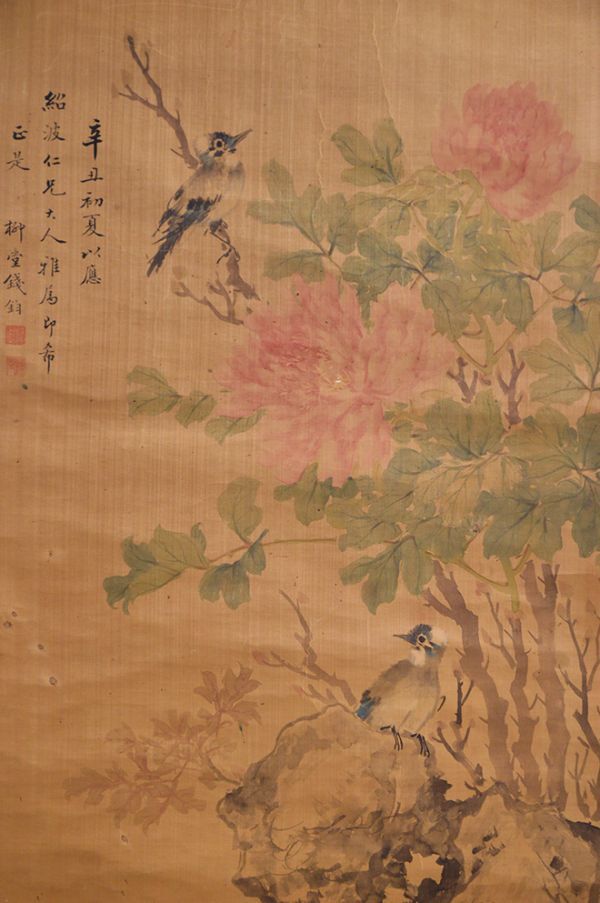 辛丑初夏以應
紹波仁兄大人雅属即希
正是 柳堂錢鈞